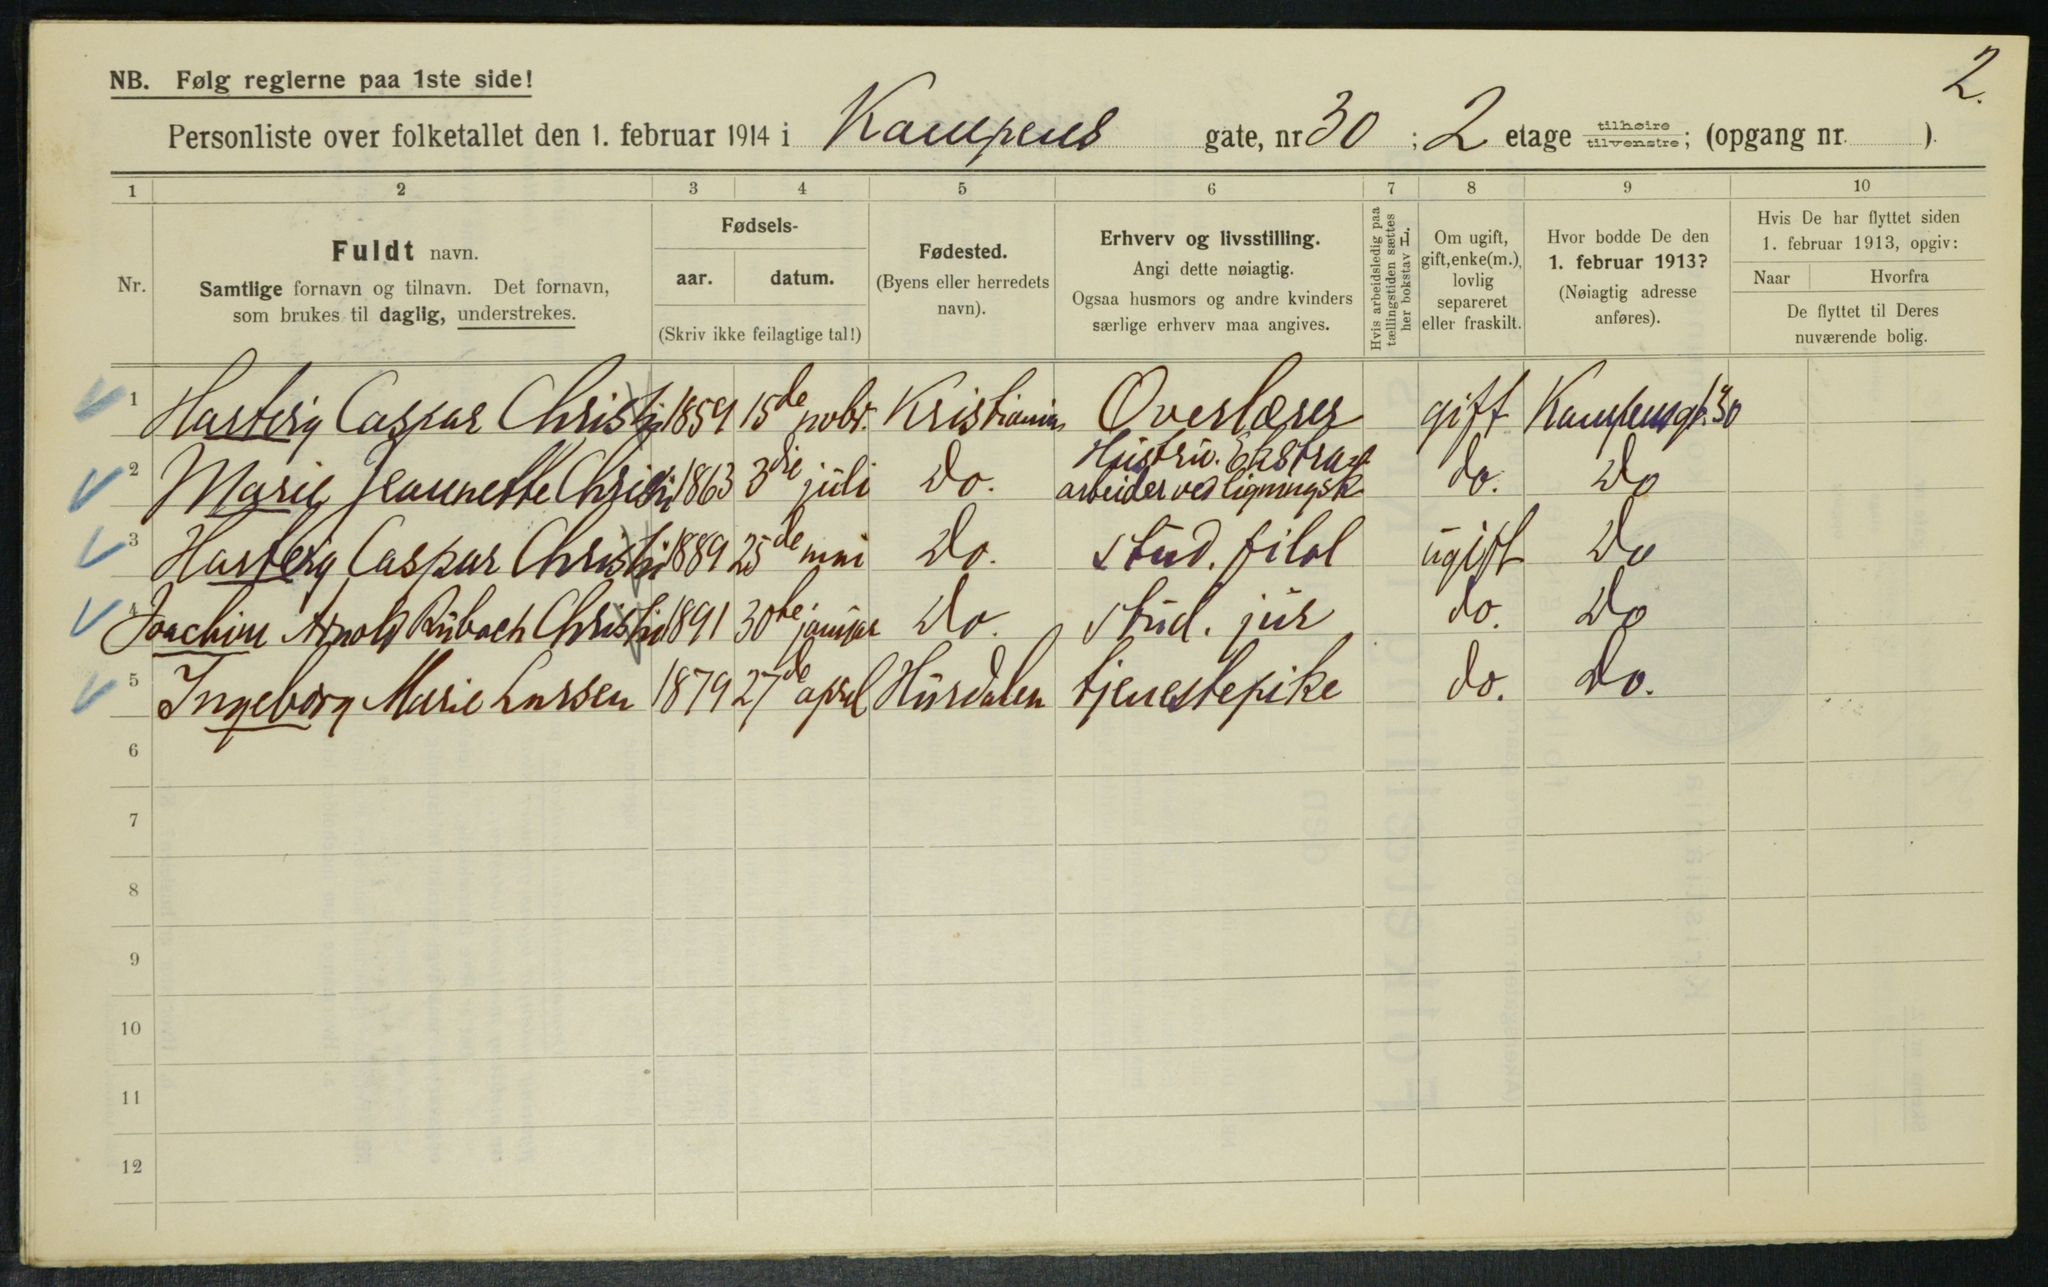 2.
NB. Følg reglerne paa 1ste side!
Personliste over folketallet den 1. februar 1914 i Kampens gate, nr 30 ; 2 etage tilhøire tilvenstre ; (opgang nr. ).
1 2 3 4 5 6 7 8 9 10
Nr.
Fuldt navn.
Samtlige fornavn og tilnavn. Det fornavn,
som brukes til daglig, understrekes.
Fødsels-
aar. datum.
(Skriv ikke feilagtige tal!)
Fødested.
(Byens eller herredets
navn).
Erhverv og livsstilling.
Angi dette nøiagtig.
Ogsaa husmors og andre kvinders
særlige erhverv maa angives.
Hvis arbeidsledig paa
tællingstiden sættes
her bokstav L.
Om ugift,
gift, enke(m.),
lovlig
separeret
eller fraskilt.
Hvor bodde De den
1. februar 1913?
(Nøiagtig adresse
anføres).
Hvis De har flyttet siden
1. februar 1913, opgiv:
Naar Hvorfra
De flyttet til Deres
nuværende bolig.
1 Caspar 1859 15de novbr. Kristiania Overlærer gift Kampensgt. 30
2 Marie Jeannette 1863 3die juli Do. Hustru. Ekstra-
arbeider ved ligningsk. do. Do
3 Caspar 1889 25de mai Do. stud. filol ugift Do
4 Joachim Arnold Rubach 1891 30te januar Do. stud. jur do. Do
5 Ingeborg Marie Larsen 1879 27de april Hurdalen tjenestepike do. Do.
6
7
8
9
10
11
12